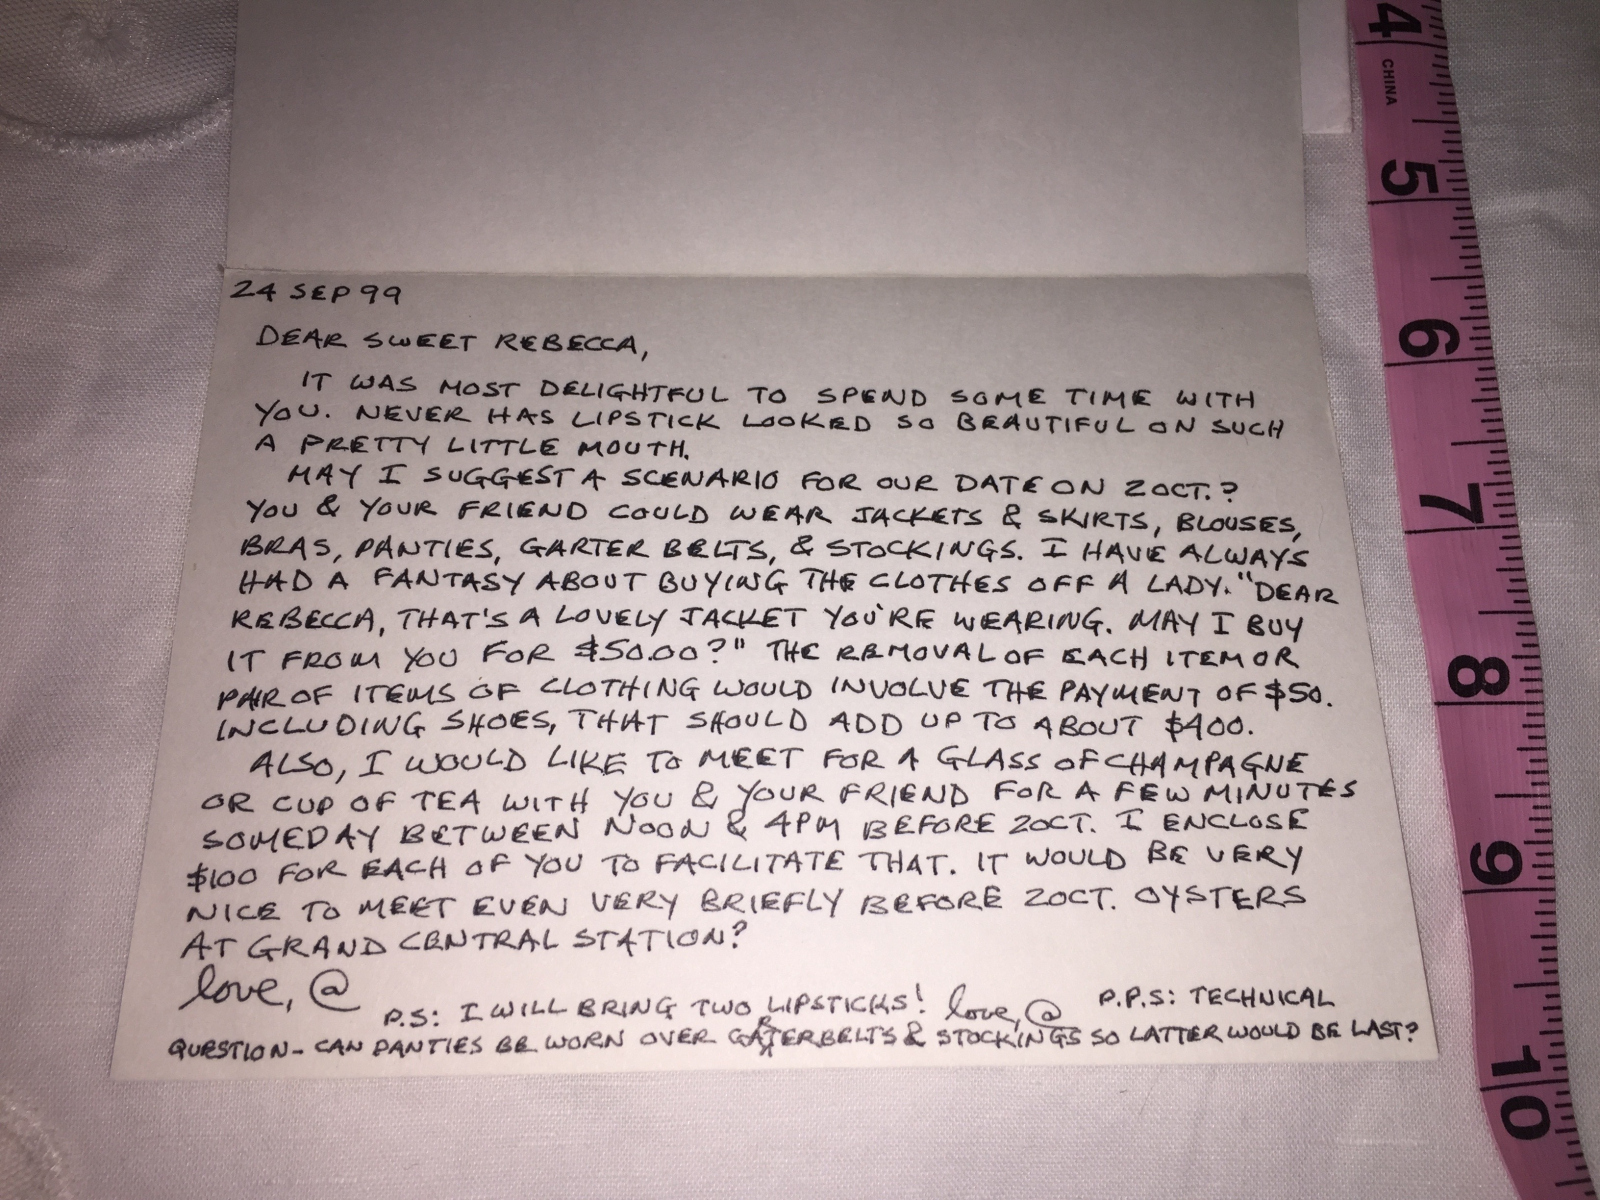 24 SEP 99
DEAR SWEET REBECCA,
IT WAS MOST DELIGHTFUL TO SPEND SOME TIME WITH
YOU. NEVER HAS LIPSTICK LOOKED SO BEAUTIFUL ON SUCH
A PRETTY LITTLE MOUTH.
MAY I SUGGEST A SCENARIO FOR OUR DATE ON 2 OCT.?
YOU & YOUR FRIEND COULD WEAR JACKETS & SKIRTS, BLOUSES,
BRAS, PANTIES, GARTER BELTS, & STOCKINGS. I HAVE ALWAYS
HAD A FANTASY ABOUT BUYING THE CLOTHES OFF A LADY. "DEAR
REBECCA, THAT'S A LOVELY JACKET YOU'RE WEARING. MAY I BUY
IT FROM YOU FOR $50.00?" THE REMOVAL OF EACH ITEM OR
PAIR OF ITEMS OF CLOTHING WOULD INVOLVE THE PAYMENT OF $50.
INCLUDING SHOES, THAT SHOULD ADD UP TO ABOUT $400.
ALSO, I WOULD LIKE TO MEET FOR A GLASS OF CHAMPAGNE
OR CUP OF TEA WITH YOU & YOUR FRIEND FOR A FEW MINUTES
SOMEDAY BETWEEN NOON & 4PM BEFORE 2 OCT. I ENCLOSE
$100 FOR EACH OF YOU TO FACILITATE THAT. IT WOULD BE VERY
NICE TO MEET EVEN VERY BRIEFLY BEFORE 2 OCT. OYSTERS
AT GRAND CENTRAL STATION?
love, @
P.S: I WILL BRING TWO LIPSTICKS! love, @ P.P.S: TECHNICAL
QUESTION - CAN PANTIES BE WORN OVER GARTERBELTS & STOCKINGS SO LATTER WOULD BE LAST?
4
CHINA
5
6
7
8
9
10